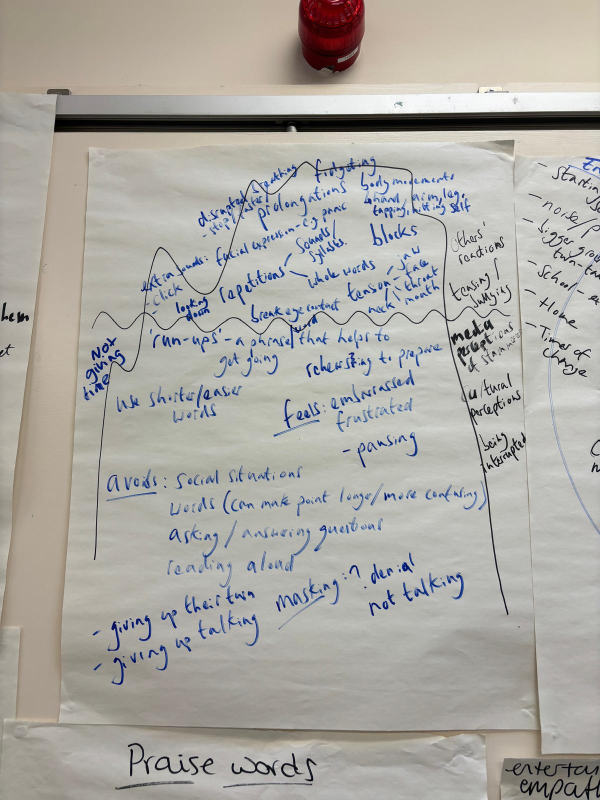 disrupted breathing
- stop / faster
fidgeting
prolongations
body movements
↳ hand, arm, leg,
tapping, hitting self
extra sounds:
- click
facial expression - e.g. panic
blocks
looking
down
repetitions
sounds/
syllables
whole words
tension
jaw
face
throat
mouth
neck
break eye contact
others'
reactions
teasing/
bullying
Not
giving
time
'run-ups' - a phrase that helps to
word
got going
rehearsing to prepare
media
perceptions
of stammer
use shorter/easier
words
feels: embarrassed
frustrated
- pausing
cultural
perceptions
being
interrupted
avoids: social situations
words (can make point longer/more confusing)
asking/answering questions
reading aloud
- giving up their turn
- giving up talking
masking:?
denial
not talking
- starting
- noise/
- bigger
- school -
- Home
- Times of
change
Praise words
empath